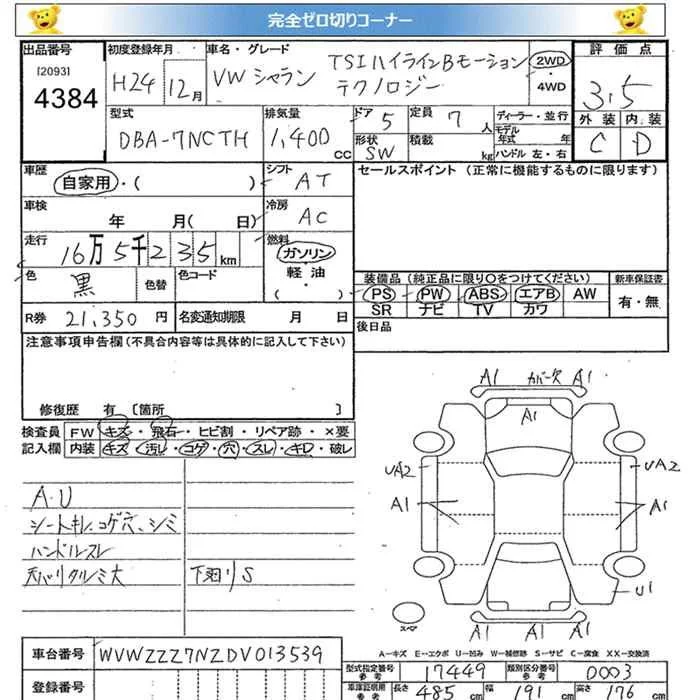 完全ゼロ切りコーナー
出品番号 初度登録年月 車名・グレード 評価点
[2093] 4384
H24 12月 VW シャラン TSIハイラインBモーションテクノロジー 2WD・4WD
3.5
型式 排気量 ドア 定員 ディーラー・並行 外装 内装
DBA-7NCTH 1,400 cc 5 7人 モデル年式 年
形状 SW 積載 kg ハンドル 左・右 C D
車歴 シフト セールスポイント (正常に機能するものに限ります)
自家用・( ) AT
車検 冷房
年 月( 日) AC
走行 燃料
16万5千235km ガソリン・軽油・( )
色 黒 色替 色コード
装備品 (純正品に限り○をつけてください) 新車保証書
PS PW ABS エアB AW 有・無
SR ナビ TV カワ
R券 21,350 円 名変通知期限 月 日 後日品
注意事項申告欄(不具合内容等は具体的に記入して下さい)
修復歴 有 〔箇所 〕
検査員 FW キズ・飛石・ヒビ割・リペア跡・×要
記入欄 内装 キズ・汚レ・コゲ・穴・スレ・キレ・破レ
A1 カバー欠 A1
A1
UA2 UA2
A1 A1
A.U
シートキレ、コゲ穴、シミ
ハンドルスレ
天バリタルミ大 下廻りS
U1
スペア
A1 A1 A1
A-キズ E-エクボ U-凹み W-補修跡 S-サビ C-腐食 XX-交換済
車台番号 WVWZZZ7NZDV013539
型式指定番号 参考 17449 類別区分番号 参考 0003
登録番号
車庫証明用 参考 長さ 485 cm 幅 191 cm 高さ 176 cm